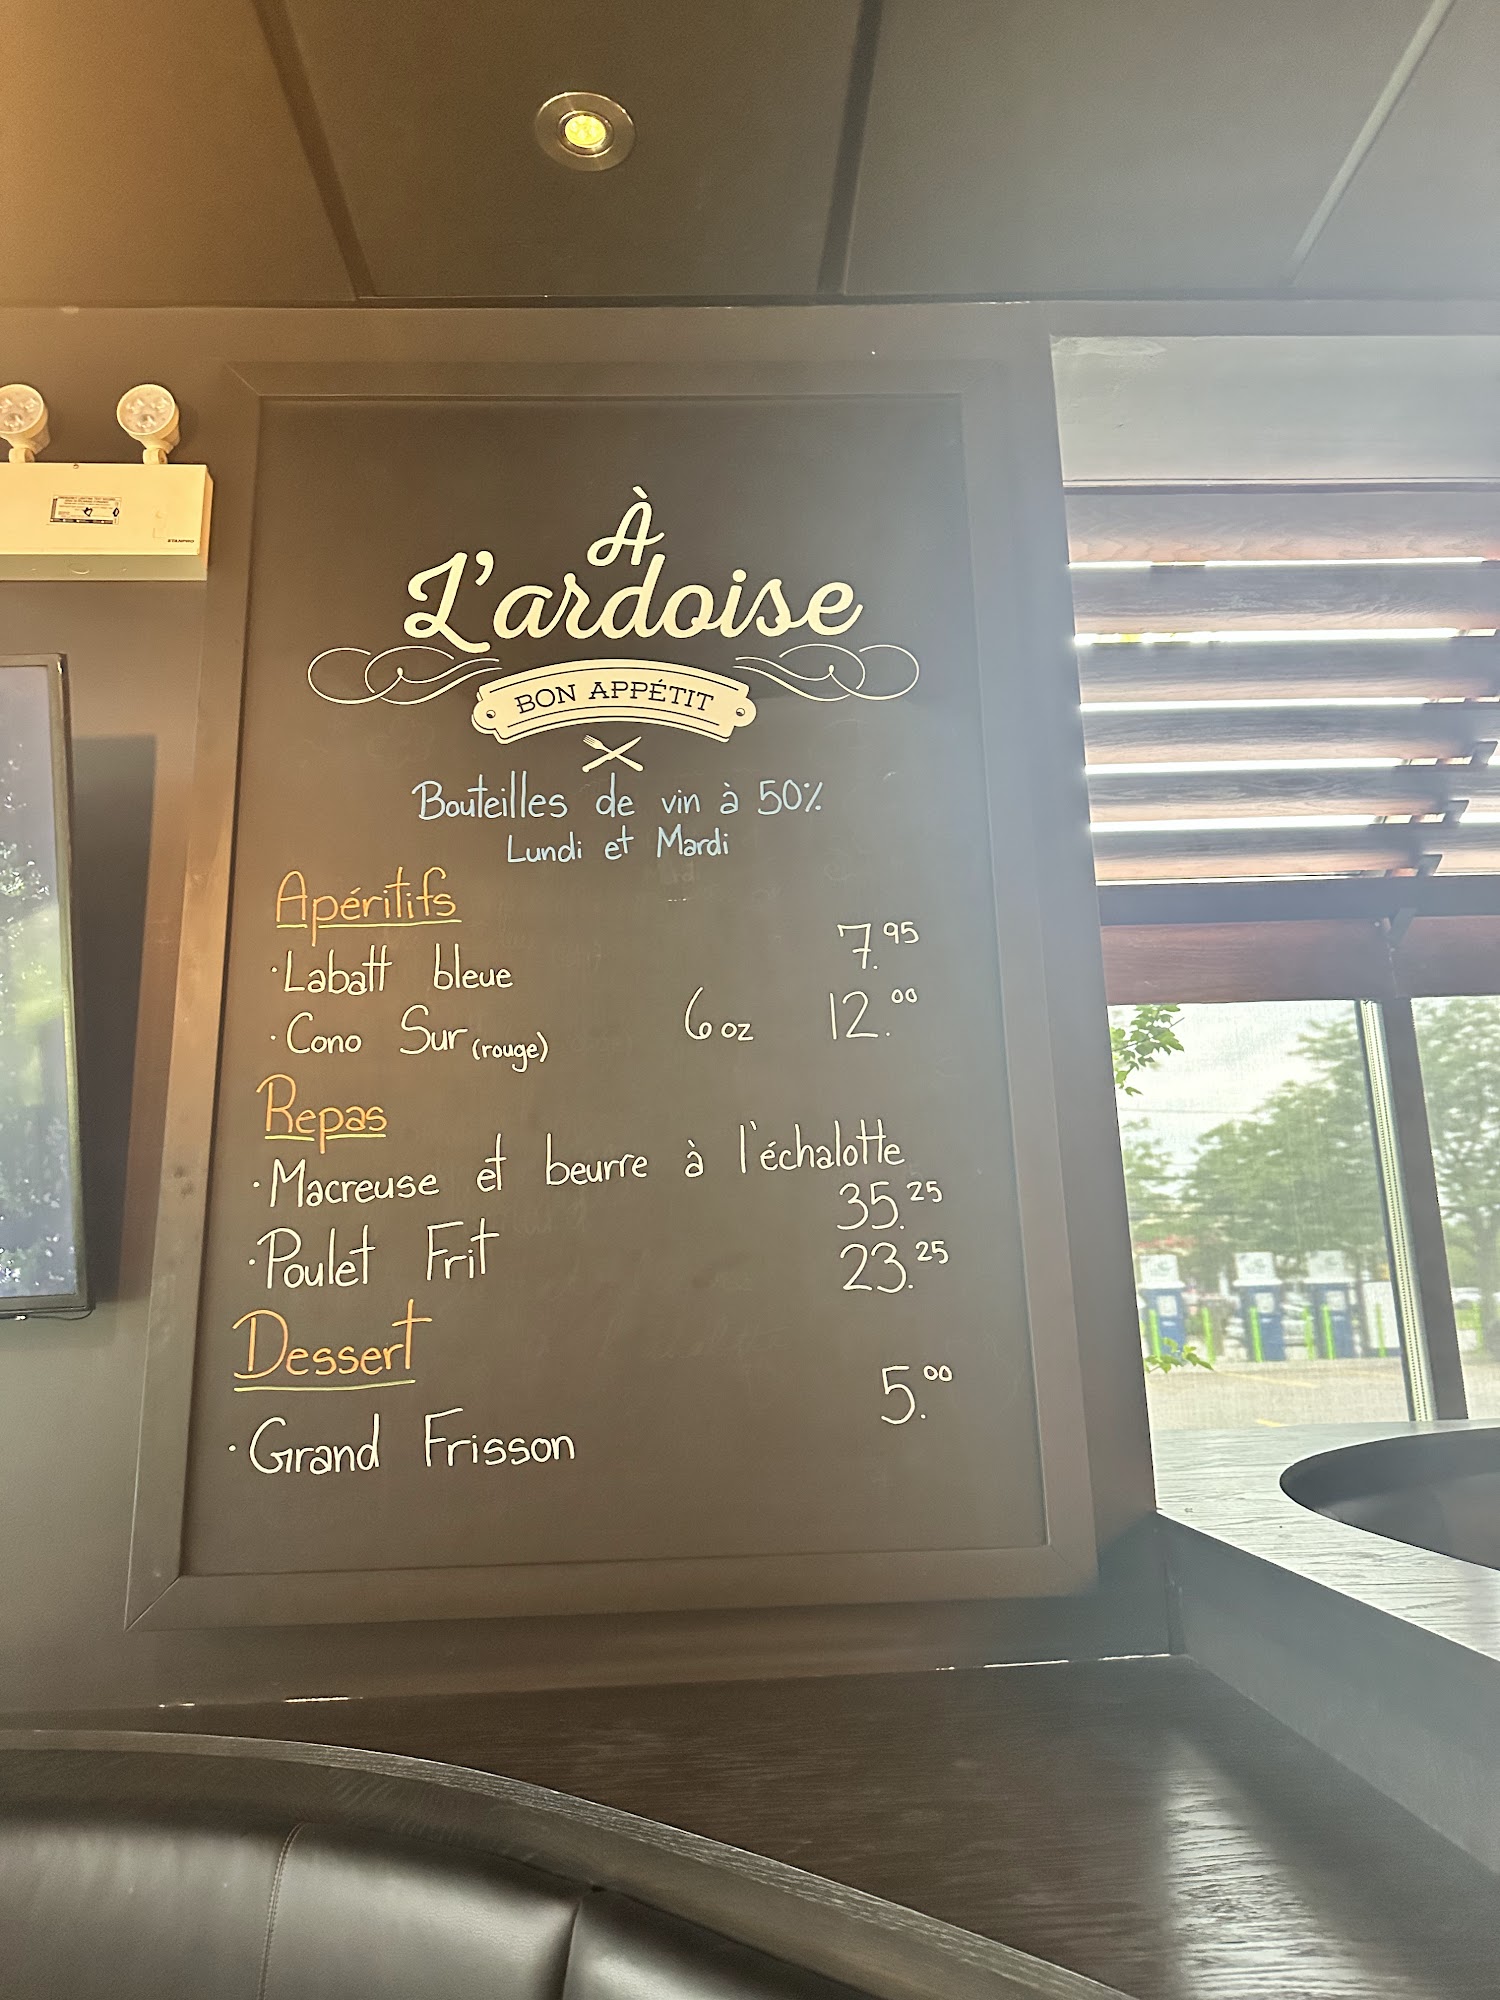 À
L'ardoise
BON APPÉTIT
Bouteilles de vin à 50%
Lundi et Mardi
Apéritifs
·Labatt bleue 7.95
·Cono Sur (rouge) 6 oz 12.00
Repas
·Macreuse et beurre à l'échalotte
35.25
·Poulet Frit 23.25
Dessert
·Grand Frisson 5.00